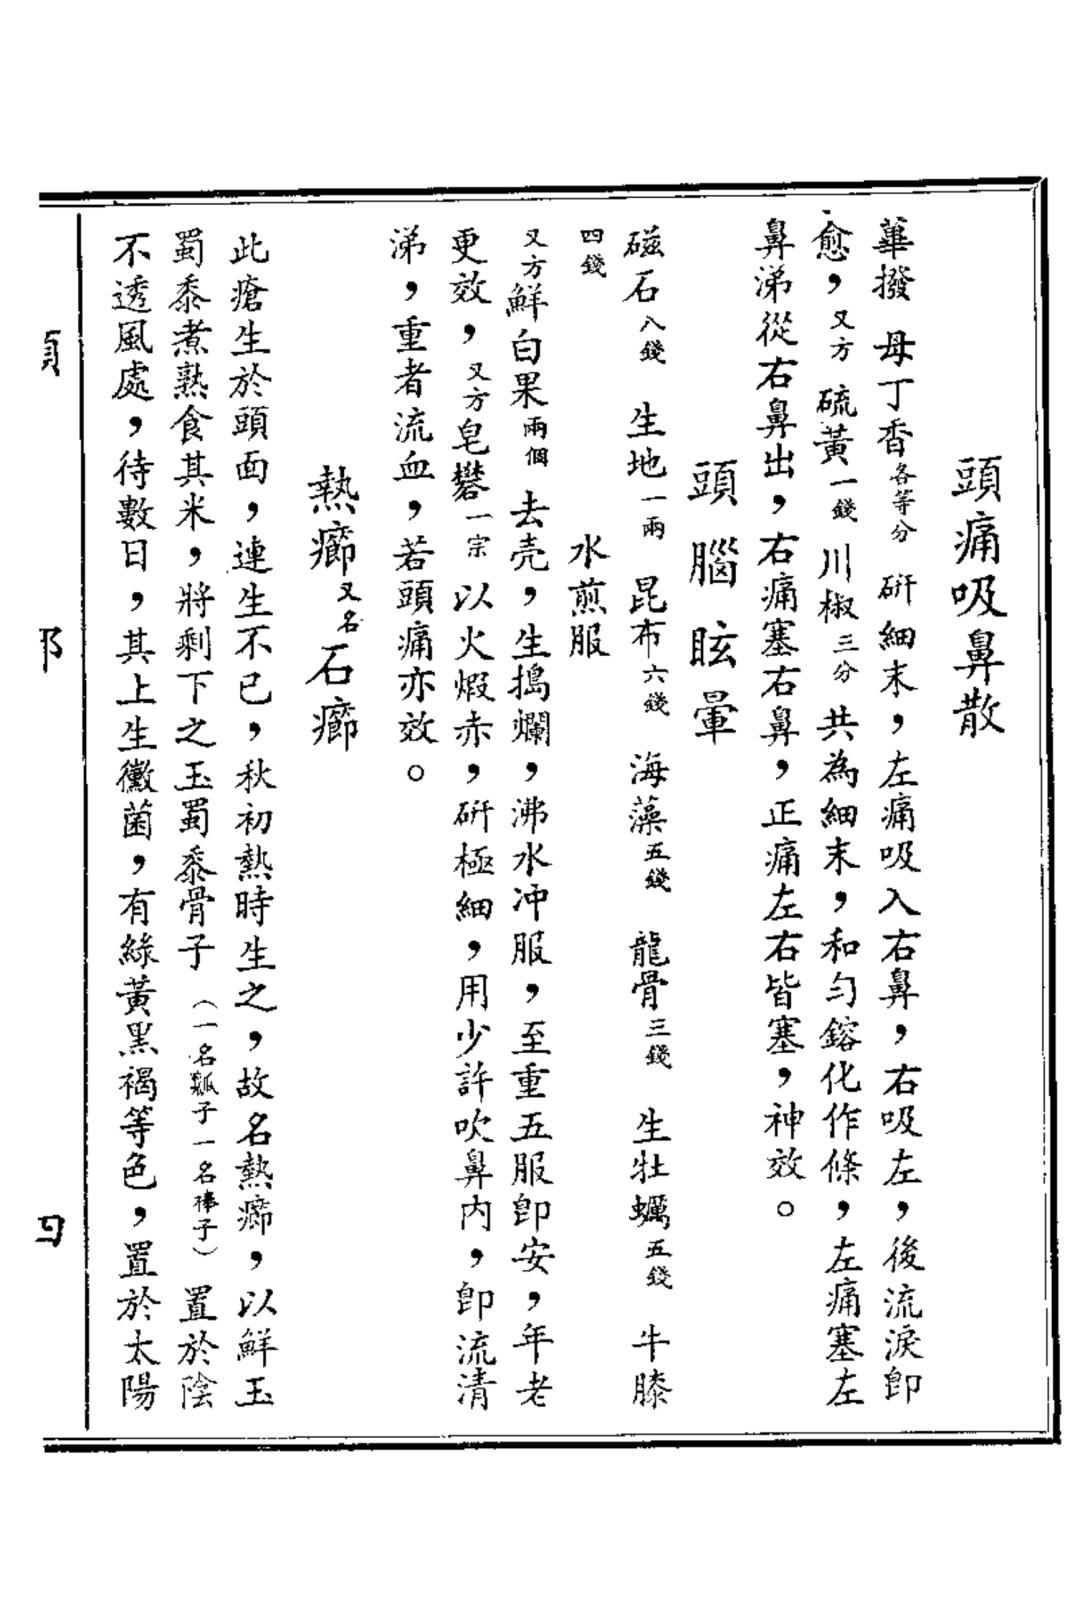 頭痛吸鼻散
蓽撥 母丁香各等分 研細末，左痛吸入右鼻，右吸左，後流淚卽
愈，又方 硫黃一錢 川椒三分 共為細末，和勻鎔化作條，左痛塞左
鼻涕從右鼻出，右痛塞右鼻，正痛左右皆塞，神效。
頭腦眩暈
磁石八錢 生地一兩 昆布六錢 海藻五錢 龍骨三錢 生牡蠣五錢 牛膝
四錢 水煎服
又方鮮白果兩個 去壳，生搗爛，沸水冲服，至重五服卽安，年老
更效，又方皂礬一宗 以火煆赤，研極細，用少許吹鼻内，卽流清
涕，重者流血，若頭痛亦效。
熱癤又名石癤
此瘡生於頭面，連生不已，秋初熱時生之，故名熱癤，以鮮玉
蜀黍煮熟食其米，將剩下之玉蜀黍骨子（一名瓤子一名棒子）置於陰
不透風處，待數日，其上生黴菌，有綠黃黑褐等色，置於太陽